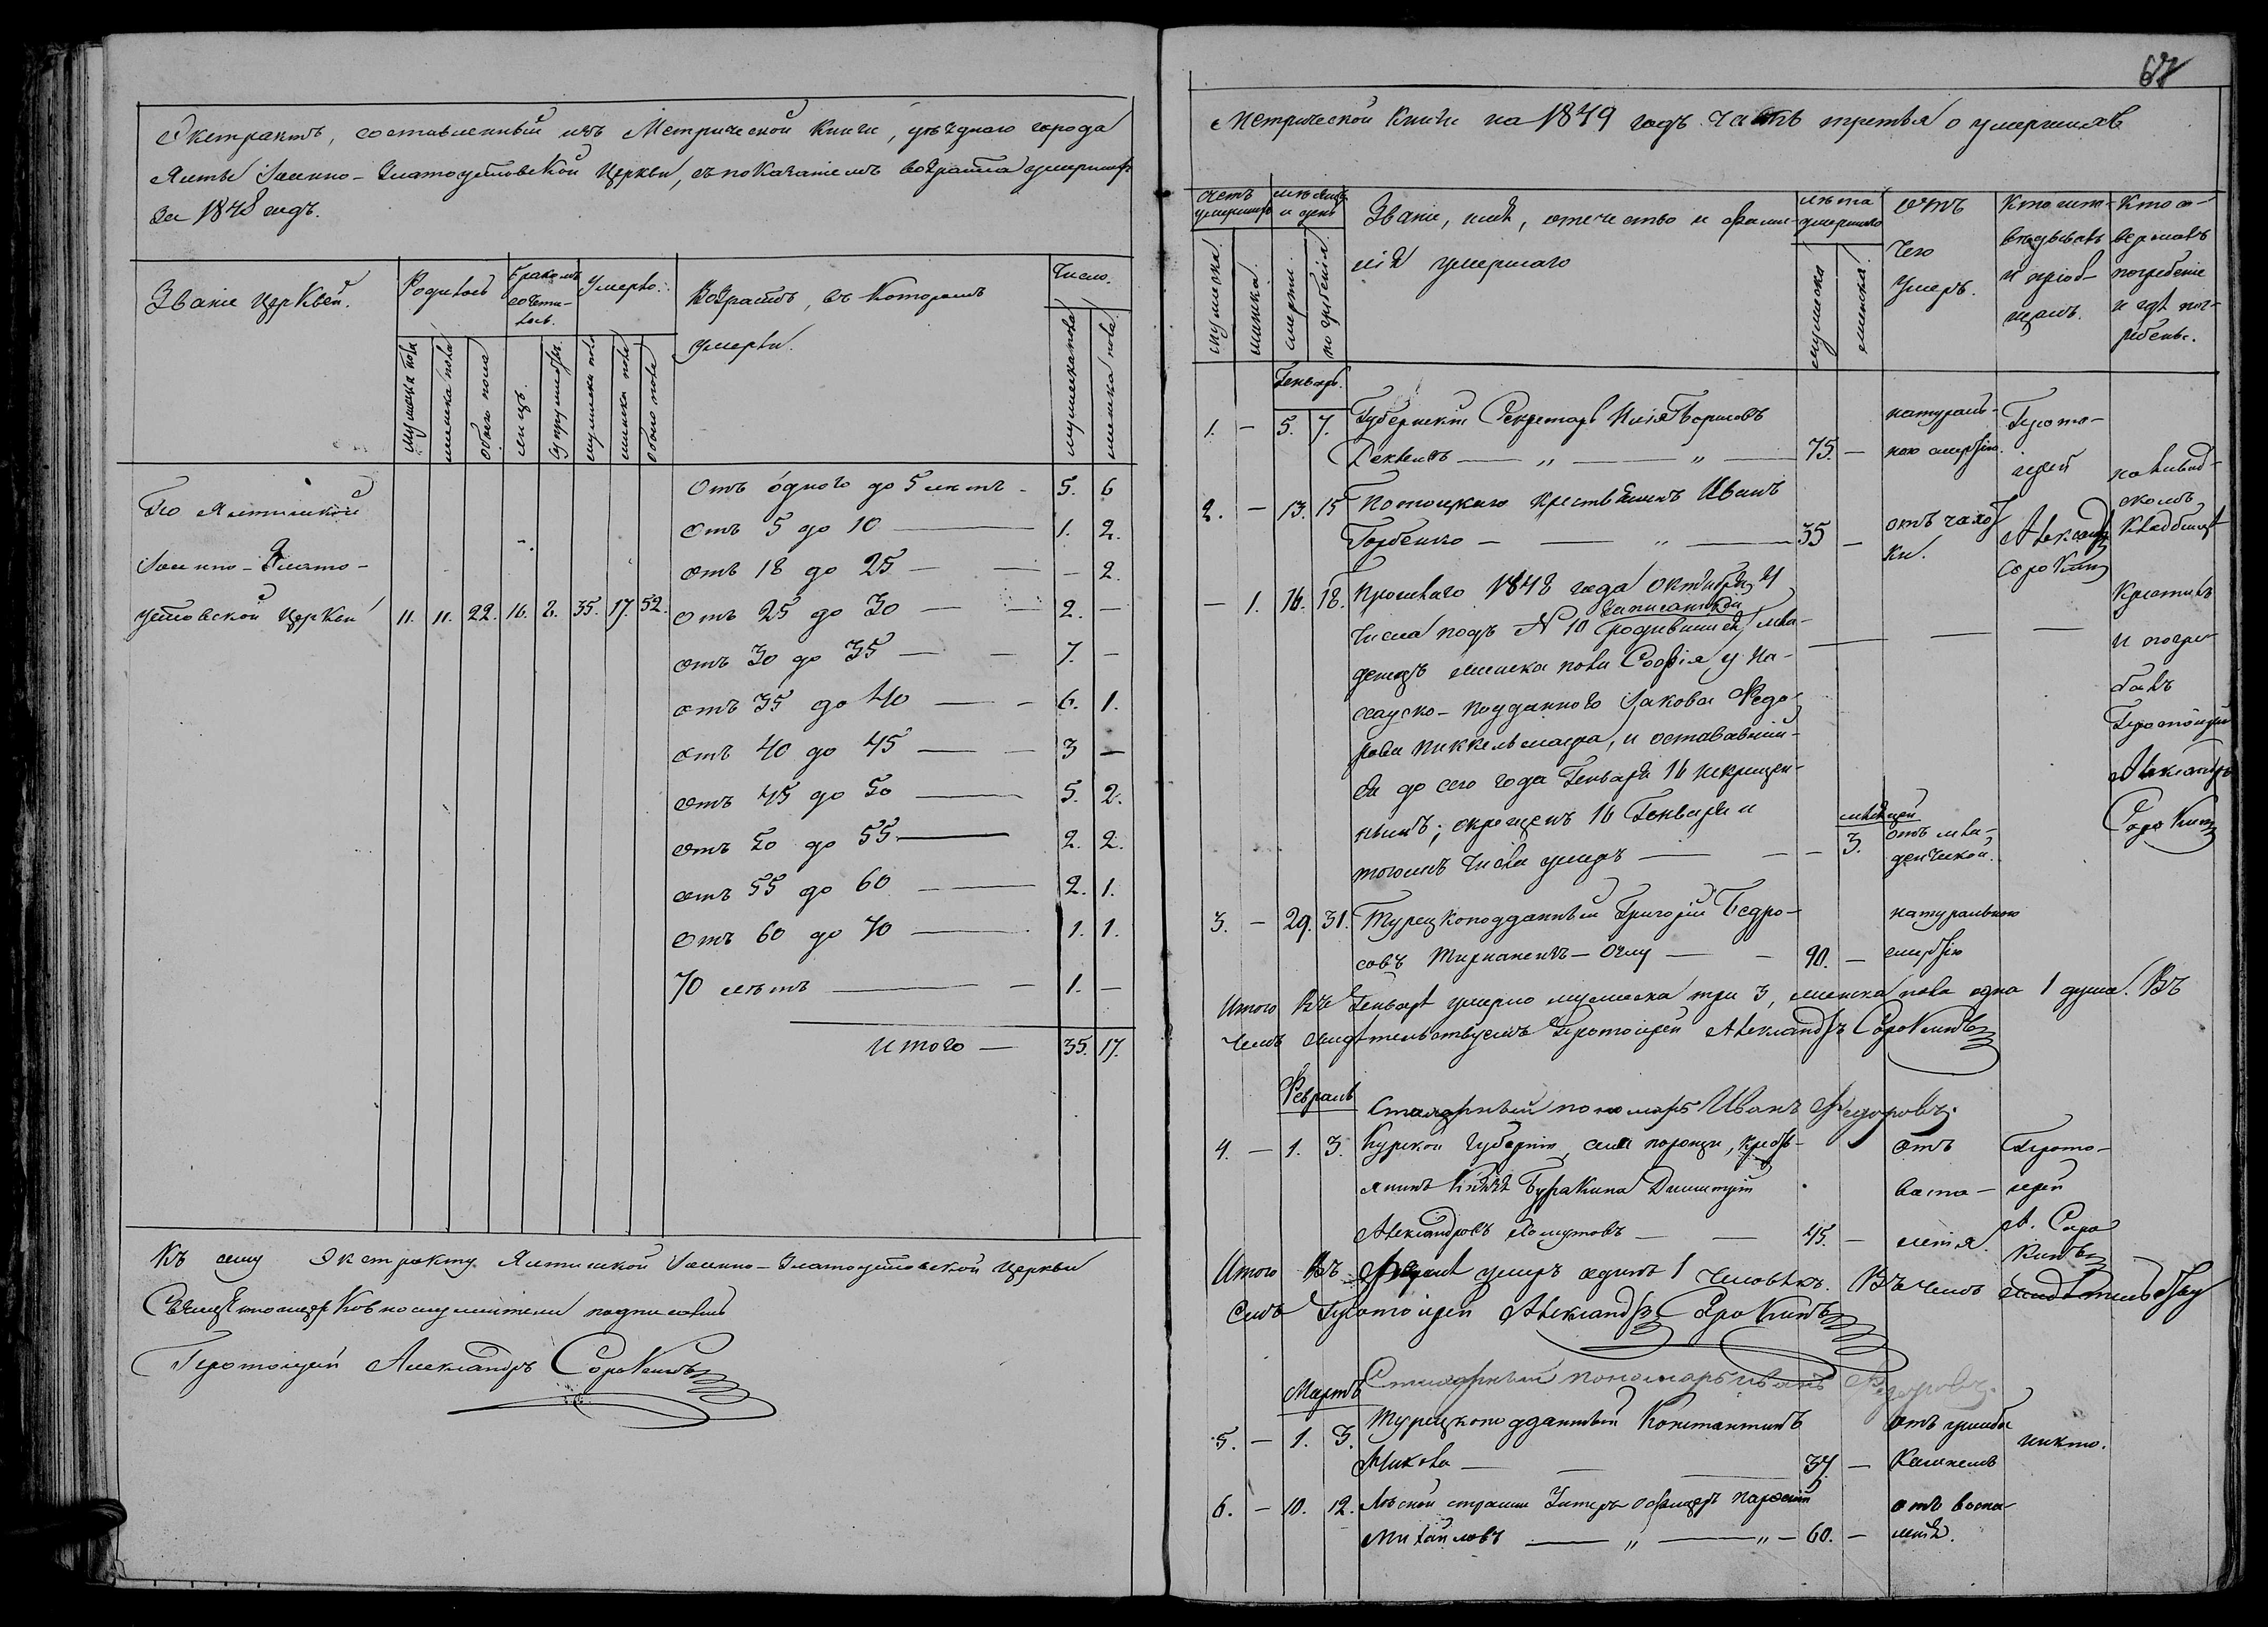 Экстрактъ, составленный изъ Метрической Книги, уѣзднаго города
Ялты Іоанно-Златоустовской Церкви, съ показаніемъ возраста умершихъ
за 1848 годъ.
Званіе Церквей.
Родилось
Бракомъ
сочета-
лось.
Умерло.
Возрастъ, въ которомъ
умерли.
Число.
мужеска пола
женска пола
обоего пола
лицъ.
супружествъ.
мужеска пола
женска пола
обоего пола
мужеска пола
женска пола
По Ялтинской
Іоанно-Злато-
устовской Церкви 11. 11. 22. 16. 8. 35. 17. 52.
Отъ одного до 5 лѣтъ - 5. 6
отъ 5 до 10 — 1. 2.
отъ 18 до 25 — — - 2.
отъ 25 до 30 — — 2. —
отъ 30 до 35 — — 7. —
отъ 35 до 40 — — 6. 1.
отъ 40 до 45 — — 3 —
отъ 45 до 50 — 5. 2.
отъ 50 до 55 — 2. 2.
отъ 55 до 60 — 2. 1.
отъ 60 до 70 — 1. 1.
70 лѣтъ — — 1. —
Итого — 35. 17.
Къ сему Экстракту Ялтинской Іоанно-Златоустовской Церкви
подписались
Протоіерей Александръ Сорокинъ
67
Метрической Книги на 1849 годъ часть третья о умершихъ
Счетъ
умершихъ
мѣсяцъ
и день
Званіе, имя, отечество и фами-
лія умершаго
лѣта
умершаго
отъ
чего
умеръ.
Кто испо-
вѣдывалъ
и пріоб-
щалъ.
Кто со-
вершалъ
погребеніе
и гдѣ пог-
ребены.
мужеска.
женска.
смерти.
погребенія.
мужеска
женска.
Генварь.
1. — 5. 7. Губернскій Секретарь Борисовъ
— „ — „ — 75. — натураль-
ною смертію.
Прото-
іерей
Александръ
Сорокинъ
2. — 13. 15 крестьянинъ Иванъ
Горбенко — — „ — 35 — отъ чахот
ки.
кладбищѣ
— 1. 16. 18. Прошлаго 1848 года Октября 4
записанный
числа подъ N 10 родившійся мла-
денецъ женска пола Софія у
подданного Якова Федо
рова , и остававшій-
ся до сего года Генваря 16 некрещен-
нымъ; окрещенъ 16 Генваря и
тогожъ числа умеръ — — —
мѣсяцей
3. отъ мла-
денческой.
Крестилъ
и погре-
балъ
Протоіерей
Александръ
Сорокинъ
3. — 29. 31. Турецкоподданный Григорій Педро-
совъ — Оглу — — 90. — натуральною
смертію
Итого въ Генварѣ умерло мужеска три 3, женска пола одна 1 душа. Въ
чемъ свидѣтельствуемъ Протоіерей Александръ Сорокинъ
Февраль
Стихарный пономарь Иванъ Федоровъ.
4. — 1. 3. Курской Губерніи, села , кресть-
янинъ Князя Куракина Дмитрій
Александровъ — — 45. — отъ
воспа-
ленія.
Прото-
іерей
А. Соро
кинъ
Итого въ Февралѣ умеръ одинъ 1 человѣкъ. Въ чемъ свидѣтельству
емъ Протоіерей Александръ Сорокинъ
Мартъ
Стихарный пономарь Иванъ Федоровъ.
5. — 1. 3. Турецкоподданный Константинъ
Никова — — — 37. — отъ
никто.
6. — 10. 12. Лѣсной стражи Унтеръ офицеръ
Михайловъ — „ — „ — 60. — отъ воспа-
ленія.